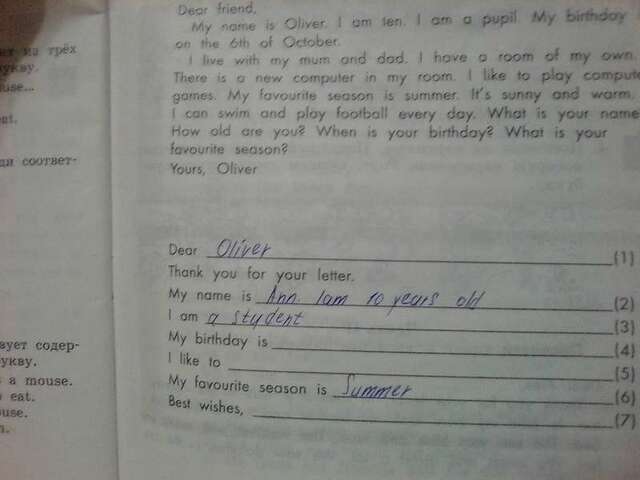 Dear friend,
My name is Oliver. I am ten. I am a pupil. My birthday
on the 6th of October.
I live with my mum and dad. I have a room of my own.
There is a new computer in my room. I like to play compute
games. My favourite season is summer. It's sunny and warm.
I can swim and play football every day. What is your name
How old are you? When is your birthday? What is your
favourite season?
Yours, Oliver
Dear Oliver (1)
Thank you for your letter.
My name is Ann. I am 10 years old (2)
I am a student (3)
My birthday is (4)
I like to (5)
My favourite season is Summer (6)
Best wishes, (7)
из трёх
укву.
use...
eat.
ди соответ-
вует содер-
укву.
a mouse.
eat.
use.